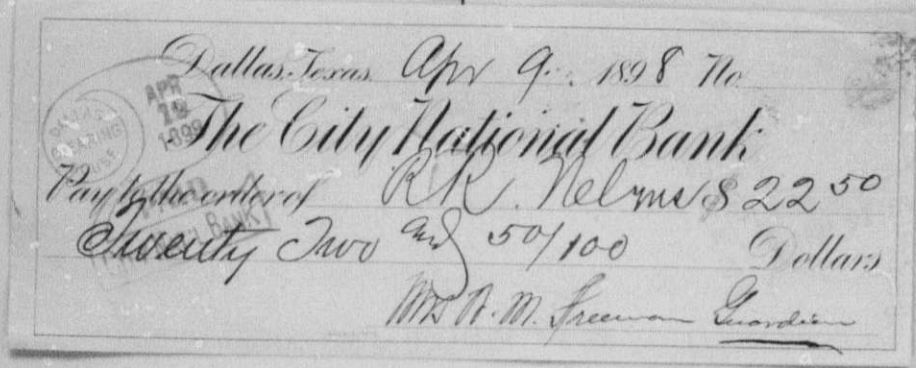 Dallas, Texas, Apr 9 1898 No.
DALLAS CLEARING HOUSE
APR 12 1898
The City National Bank
Pay to the order of R.R. Nelms $ 22 50
PAID
BANK
Twenty Two and 50/100 Dollars
Mrs R. M. Freeman Guardian